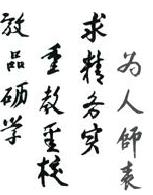 为人師表
求精务实
重教重校
敦品砺学